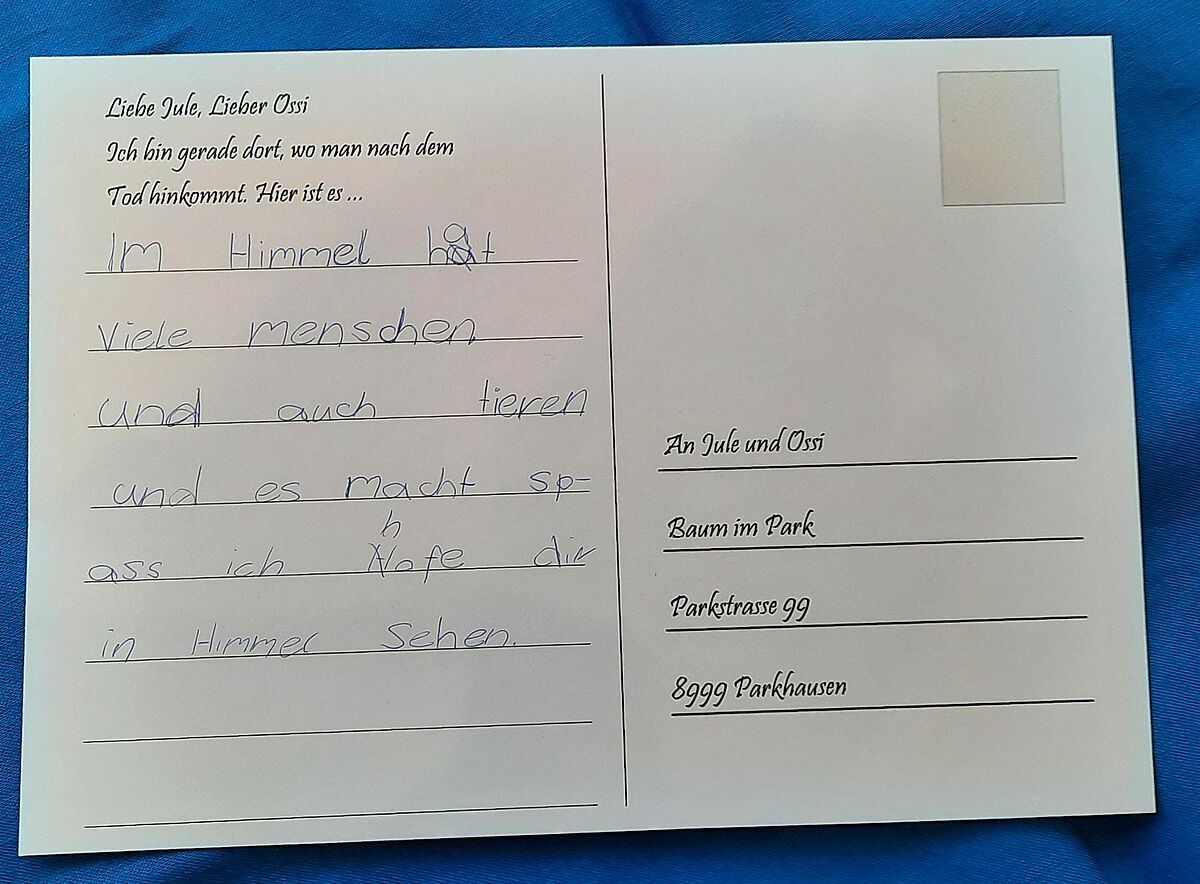 Liebe Jule, Lieber Ossi
Ich bin gerade dort, wo man nach dem
Tod hinkommt. Hier ist es ...
Im Himmel hat
Viele menschen
und auch tieren
und es macht sp-
ass ich hofe dir
in Himmel Sehen.
An Jule und Ossi
Baum im Park
Parkstrasse 99
8999 Parkhausen